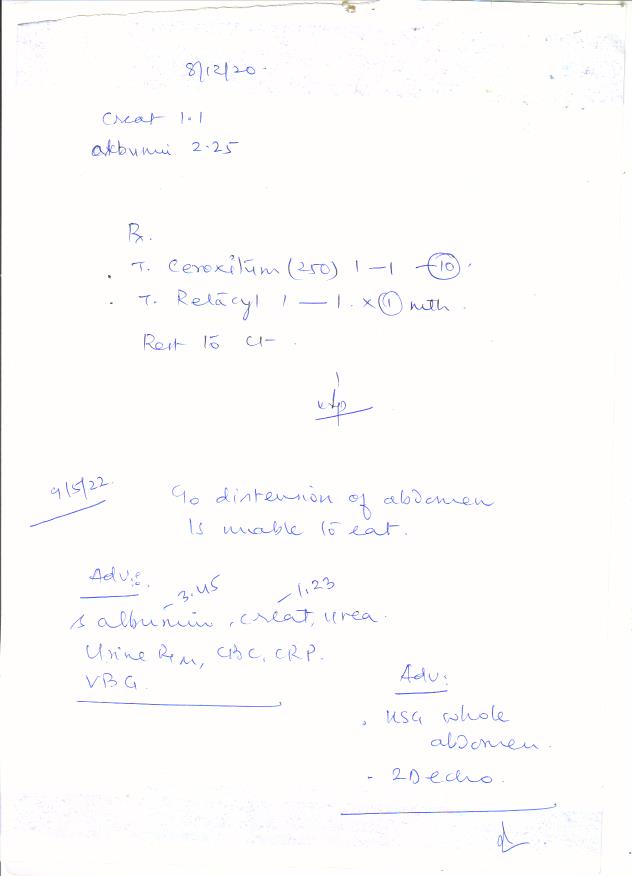 8/12/20.
Creat 1.1
albumin 2.25
Rx.
. T. Ceroxitum (250) 1-1 - 10.
. T. Relacyl 1 — 1. x 1 mth.
Rest to
9/5/22.
c/o distension of abdomen
Is unable to eat.
Adv:
3.45 1.23
s albumin, creat, urea.
Urine R/M, CBC, CRP.
VBG.
Adv:
. USG whole
abdomen.
- 2D echo.